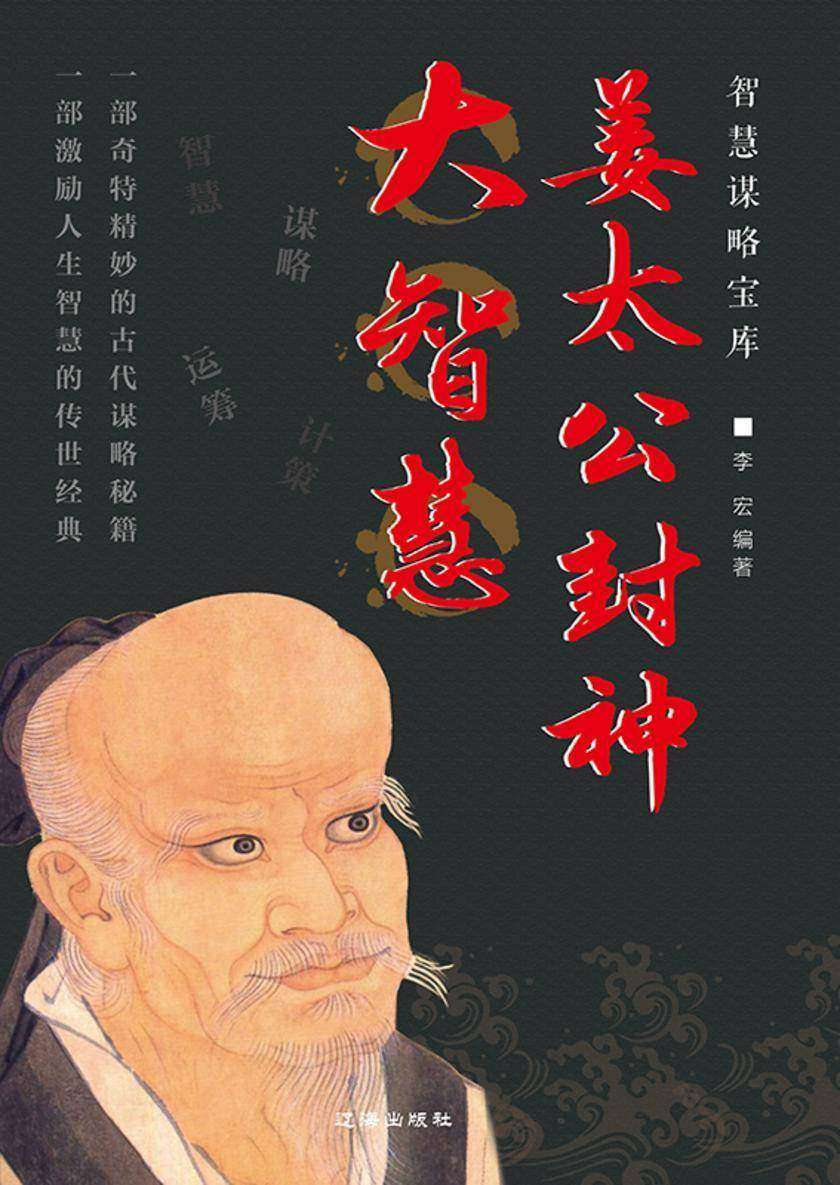 智慧谋略宝库
■李宏编著
姜太公封神
大智慧
谋略
计策
智慧
运筹
一部奇特精妙的古代谋略秘籍
一部激励人生智慧的传世经典
辽海出版社